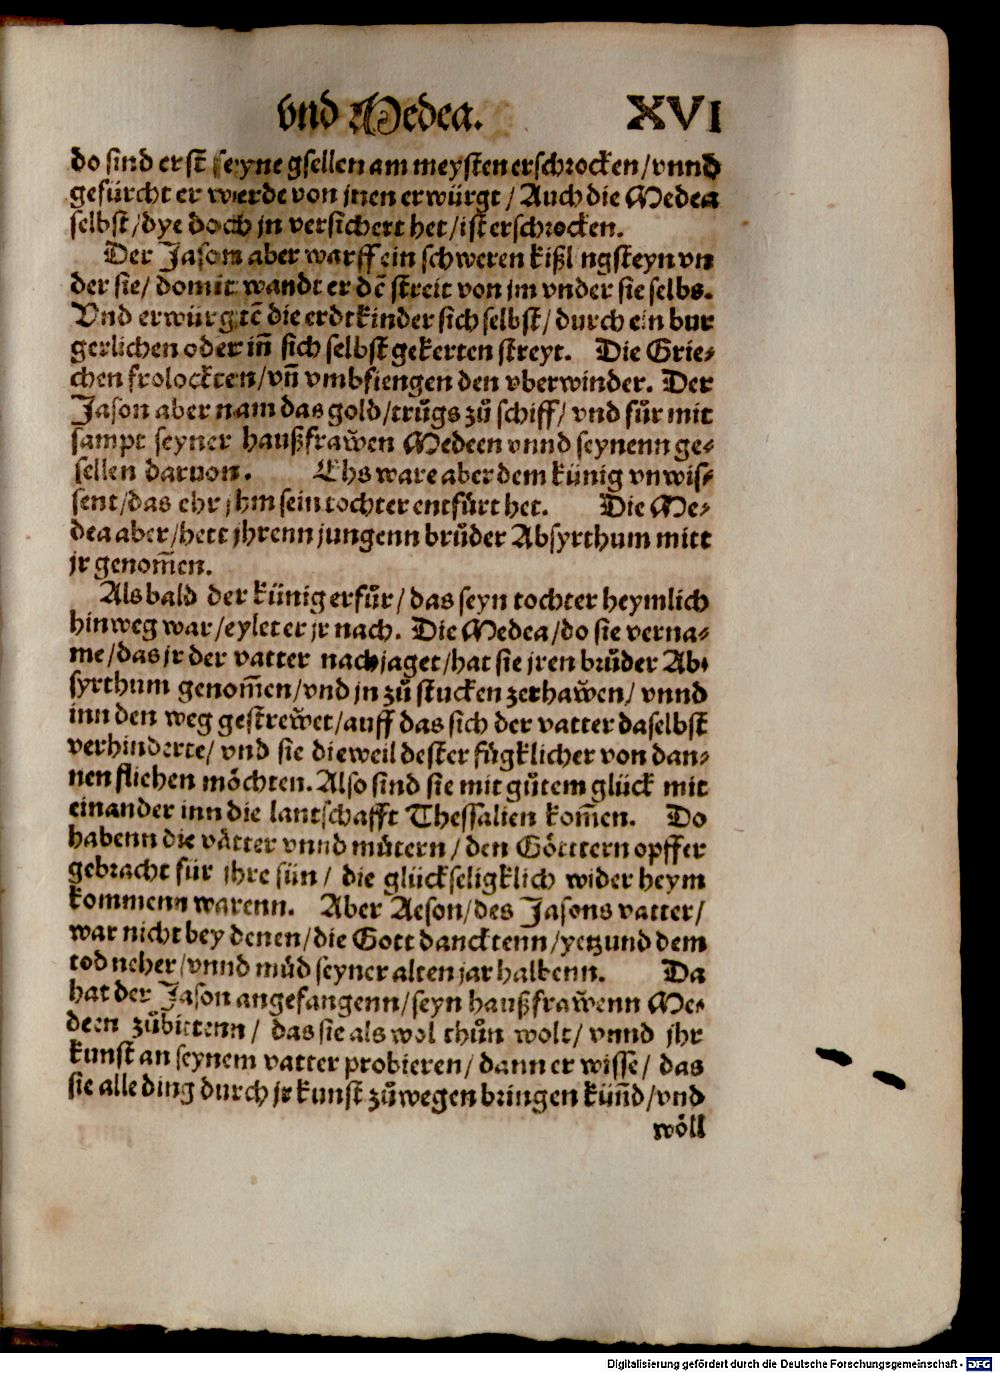 vnd Medea. XVI
do sind erst seyne gsellen am meysten erschrocken/vnnd
gefürcht er werde von jnen erwürgt/Auch die Medea
selbst/dye doch jn versichert het/ist erschrocken.
Der Jason aber warff ein schweren kißlingsteyn vn
der sie/domit wandt er dē streit von jm vnder sie selbs.
Vnd erwürgtē die erdtkinder sich selbst/durch ein bur
gerlichen oder in̄ sich selbst gekerten streyt. Die Grie⸗
chen frolockten/vn̄ vmbfiengen den vberwinder. Der
Jason aber nam das gold/trůgs zů schiff/vnd fůr mit
sampt seyner haußfraw̉en Medeen vnnd seynenn ge⸗
sellen daruon. Ehs ware aber dem künig vnwis⸗
sent/das ehr jhm sein tochter entfůrt het. Die Me⸗
dea aber/hett jhrenn jungenn brůder Absyrthum mitt
jr genom̄en.
Als bald der künig erfůr/das seyn tochter heymlich
hinweg war/eylet er jr nach. Die Medea/do sie verna⸗
me/das jr der vatter nachjaget/hat sie jren brůder Ab⸗
syrthum genom̄en/vnd jn zů stucken zerhaw̉en/vnnd
inn den weg gestrew̉et/auff das sich der vatter daselbst
verhinderte/vnd sie dieweil dester fůgklicher von dan⸗
nen fliehen möchten. Also sind sie mit gůtem glück mit
einander inn die lantschafft Thessalien kom̄en. Do
habenn die vätter vnnd můtern/den Götttern opffer
gebracht für jhre sün/die glückseligklich wider heym
kommenn warenn. Aber Aeson/des Jasons vatter/
war nicht bey denen/die Gott dancktenn/yetzund dem
tod neher/vnnd můd seyner alten jar halbenn. Da
hat der Jason angefangenn/seyn haußfraw̉enn Me⸗
deen zůbittenn/das sie als wol thůn wolt/vnnd jhr
kunst an seynem vatter probieren/dann er wisse/das
sie alle ding durch jr kunst zůwegen bringen kün̄d/vnd
wöll
Digitalisierung gefördert durch die Deutsche Forschungsgemeinschaft - DFG